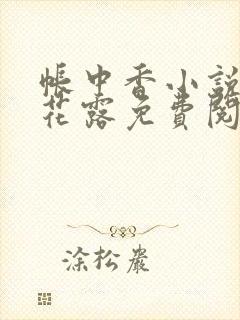 帐中香小說
花露免費閱
涂松巖